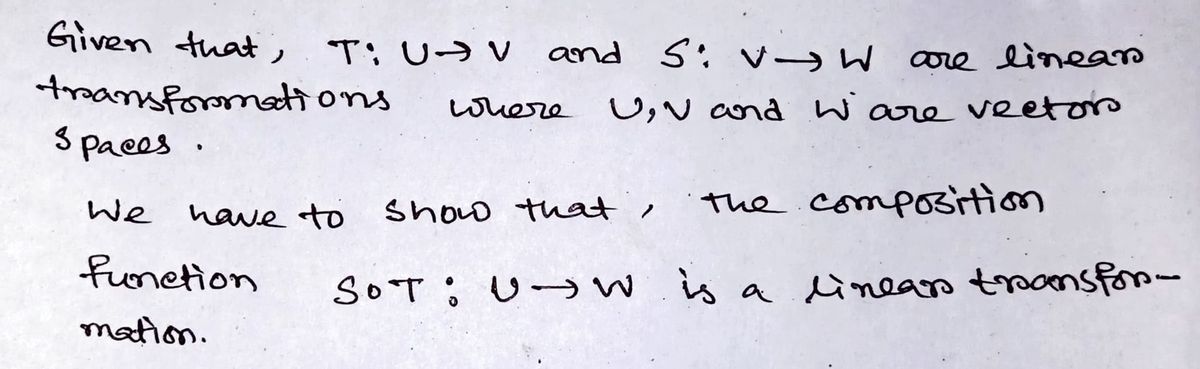 Given that, T: U→V and S: V→W are linear
transformations where U,V and W are vector
spaces.
We have to show that, the composition
function SoT: U→W is a linear transfor-
mation.